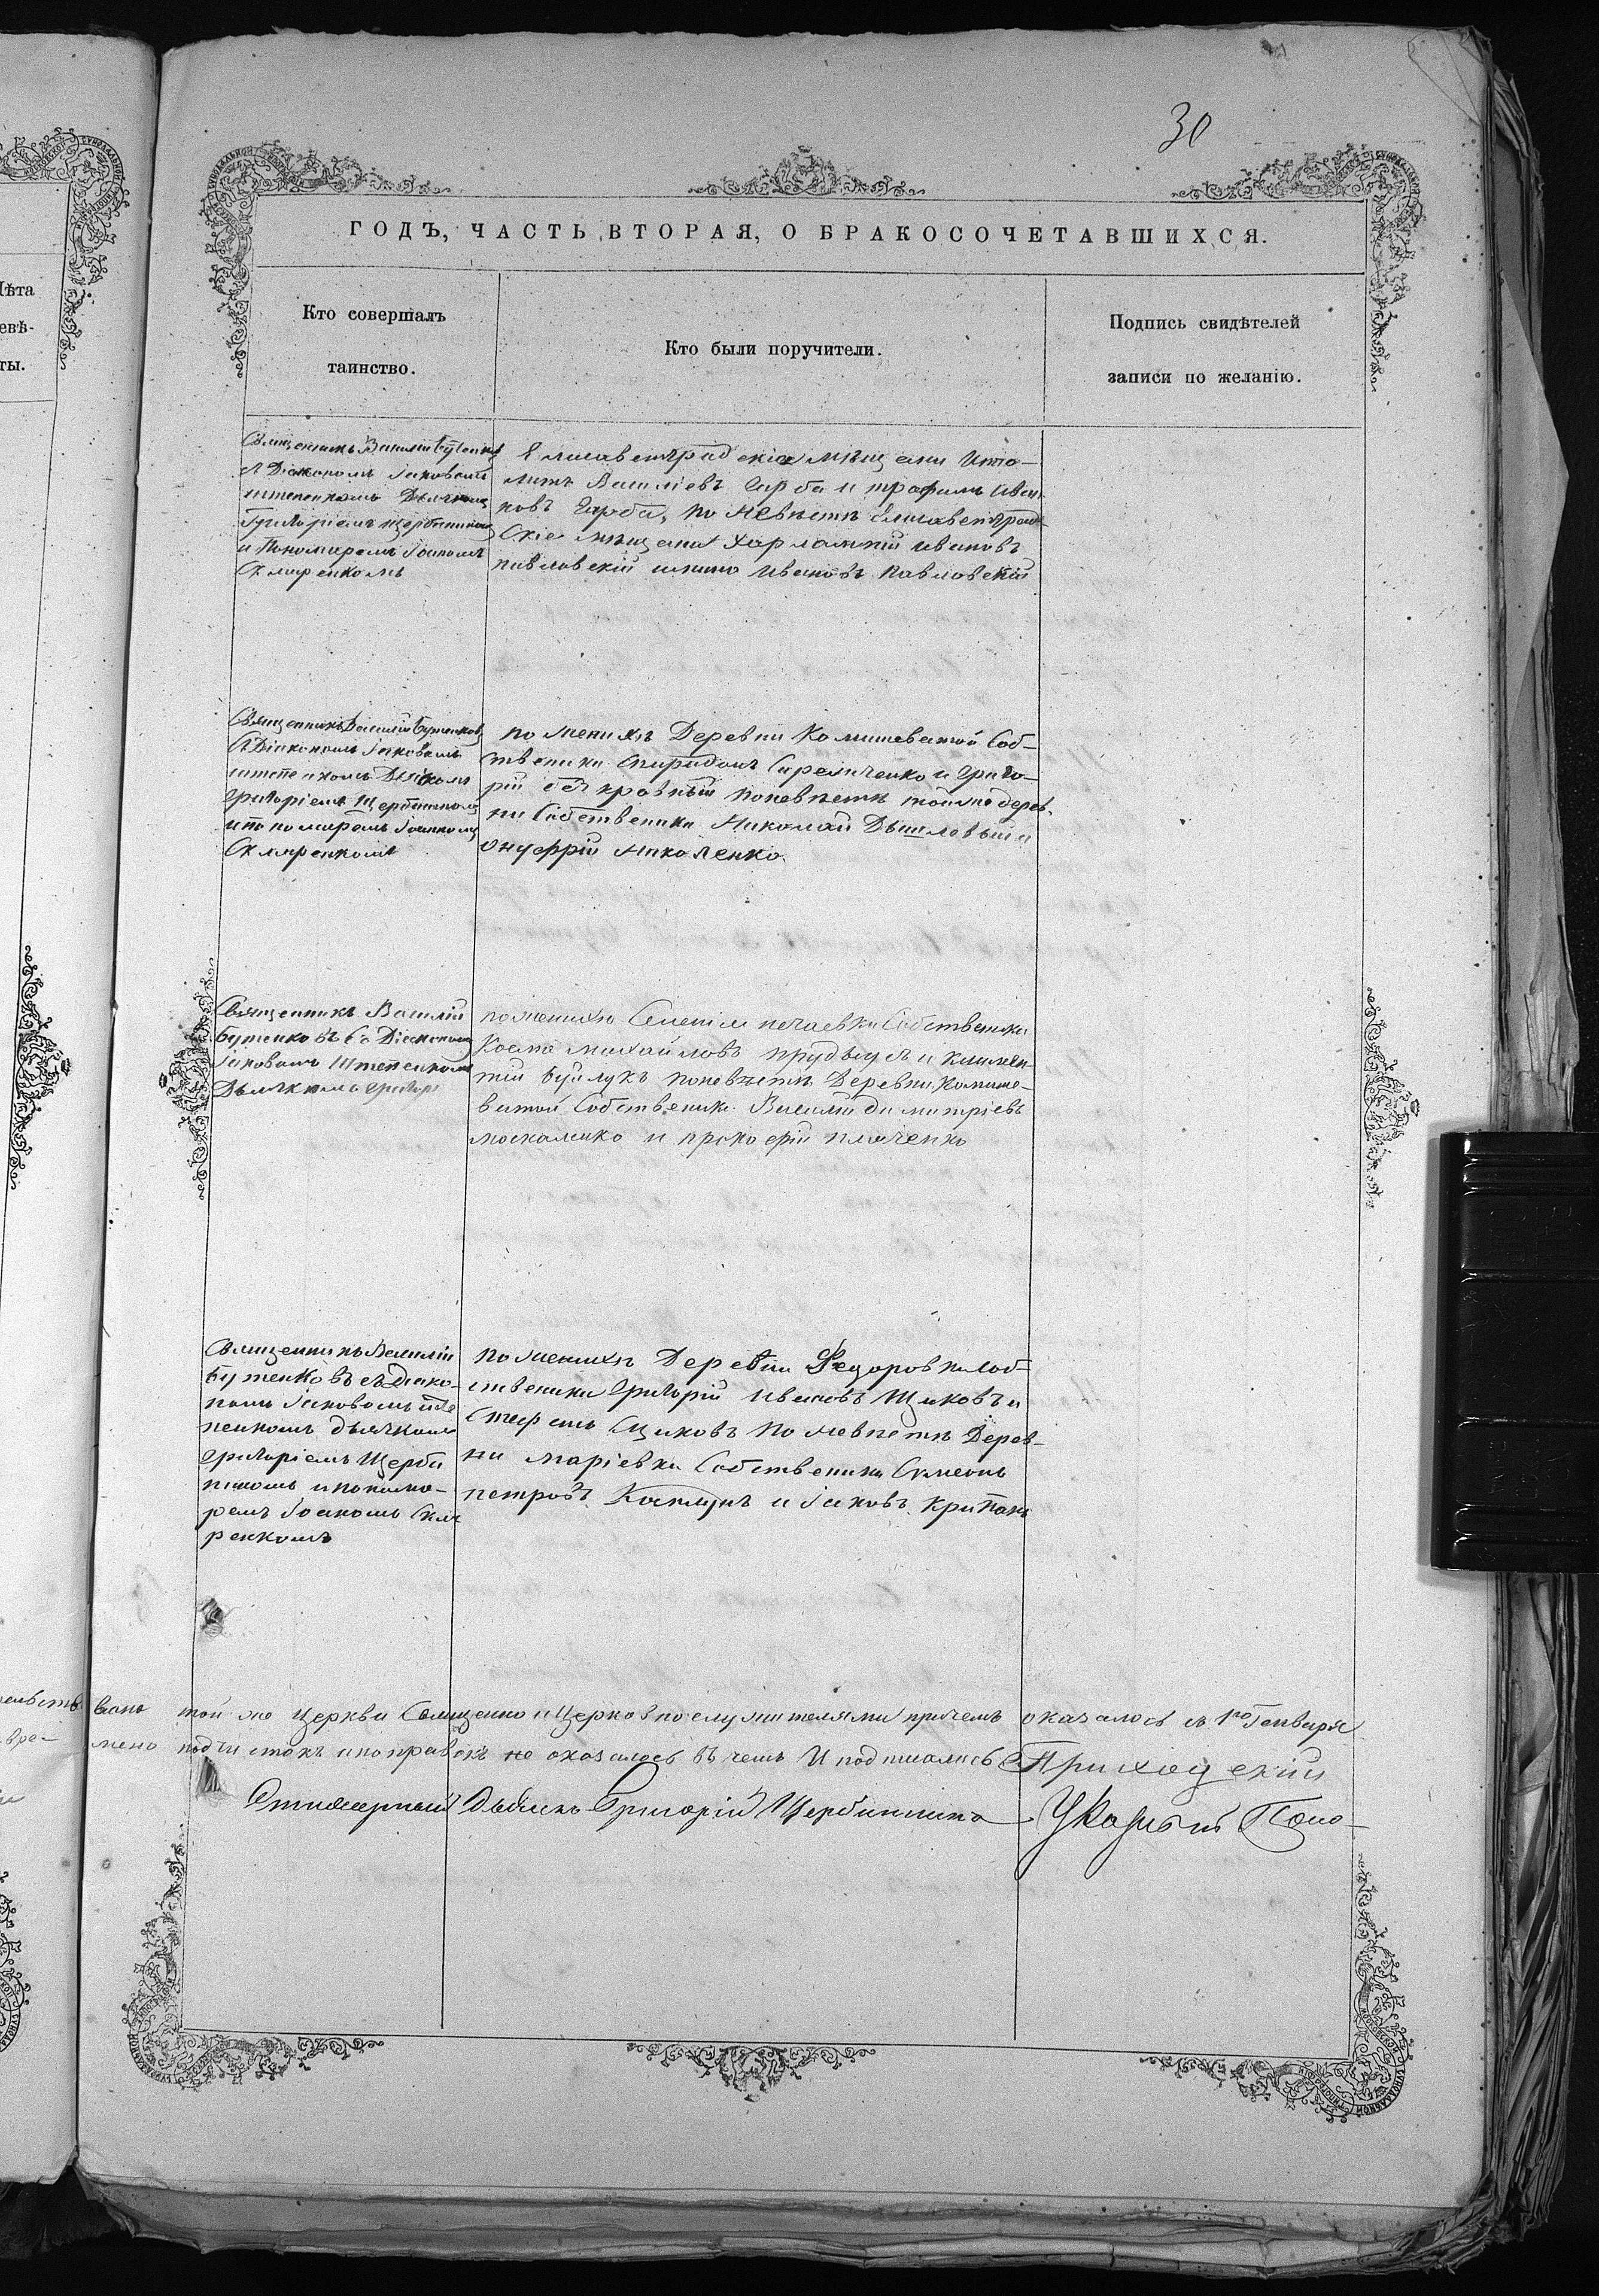 30
ГОДЪ, ЧАСТЬ ВТОРАЯ, О БРАКОСОЧЕТАВШИХСЯ.
Лѣта
евѣ-
ты.
Кто совершалъ
таинство.
Кто были поручители.
Подпись свидѣтелей
записи по желанію.
Священникъ Василій Бутенковъ
съ Діакономъ Іаковомъ
Штепенкомъ Дьячкомъ
Григоріемъ Щербининомъ
и Пономаремъ Іоаномъ
Скляренкомъ
Елисаветградскіе мѣщани Ипо-
литъ Василіевъ Сирба и трофимъ Иван
новъ по Невѣстѣ Елисаветград
Скіе мѣщани Харлампій ивановъ
павловскій Ивановъ Павловскій
Священникъ Василій Бутенковъ
съ Діакономъ Іаковомъ
штепенкомъ Дьячкомъ
Григоріемъ Щербининомъ
и пономаремъ Іоаномъ
Скляренкомъ
по женихѣ Деревни Комишеватой Соб-
ственики Спиридонъ и Григо-
рій поневѣстѣ тойже дерев
ни Собственики Николай и
онуфрій Николенко
Священникъ Василій
Бутенковъ съ Діакономъ
Іаковомъ Штепенкомъ
Дьячкомъ Григорі
по женихѣ Селенія нечаевки Собственики
Косма михайловъ и климен
тій Буйлукъ поневѣстѣ Деревни Комише-
ватой Собственики Василій димитріевъ
москаленко и прокофій
Священникъ Василій
Бутенковъ съ Діако-
номъ Іаковомъ Ште
пенкомъ дьячкомъ
Григоріемъ Щерби
ниномъ и понома-
ремъ Іоаномъ Скля
ренкомъ
по женихѣ Деревни Федоровки Соб-
ственики Григорій ивановъ и
Стефанъ по невѣстѣ Дерев-
ни маріевки Собственики Симеонъ
петровъ и Іаковъ
вре-
вано той же Церкви Священно и Церковнослужителями причемъ оказалось съ 1го Генваря
мено подчистокъ и поправокъ не оказалось въ чемъ и подписались Приходскій
Дьячокъ Григорій Щербининъ Указный Поно-